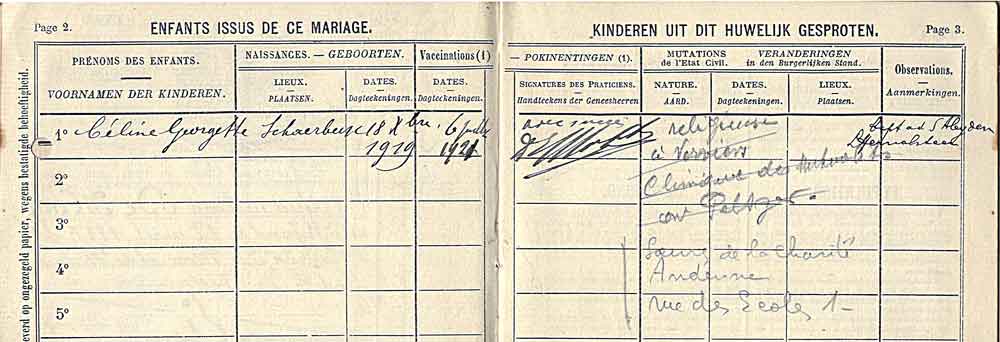 Page 2.
ENFANTS ISSUS DE CE MARIAGE.
PRÉNOMS DES ENFANTS.
VOORNAMEN DER KINDEREN.
NAISSANCES. — GEBOORTEN.
LIEUX.
PLAATSEN.
DATES.
Dagteekeningen.
Vaccinations (1)
DATES.
Dagteekeningen.
1° Céline Georgette Schaerbeek 18 Xbre 6
1919 1921
2°
3°
4°
5°
everd op ongezegeld papier, wegens bestatigde behoeftigheid.
KINDEREN UIT DIT HUWELIJK GESPROTEN.
Page 3.
— POKINENTINGEN (1).
SIGNATURES DES PRATICIENS.
Handteekens der Geneesheeren
MUTATIONS VERANDERINGEN
de l'Etat Civil. in den Burgerlijken Stand.
NATURE.
AARD.
DATES.
Dagteekeningen.
LIEUX.
Plaatsen.
Observations.
Aanmerkingen.
avec succès
religieuse
à Verviers
Clinique des
Peltzer
Soeurs de la Charité
Andenne
rue des Ecoles 1